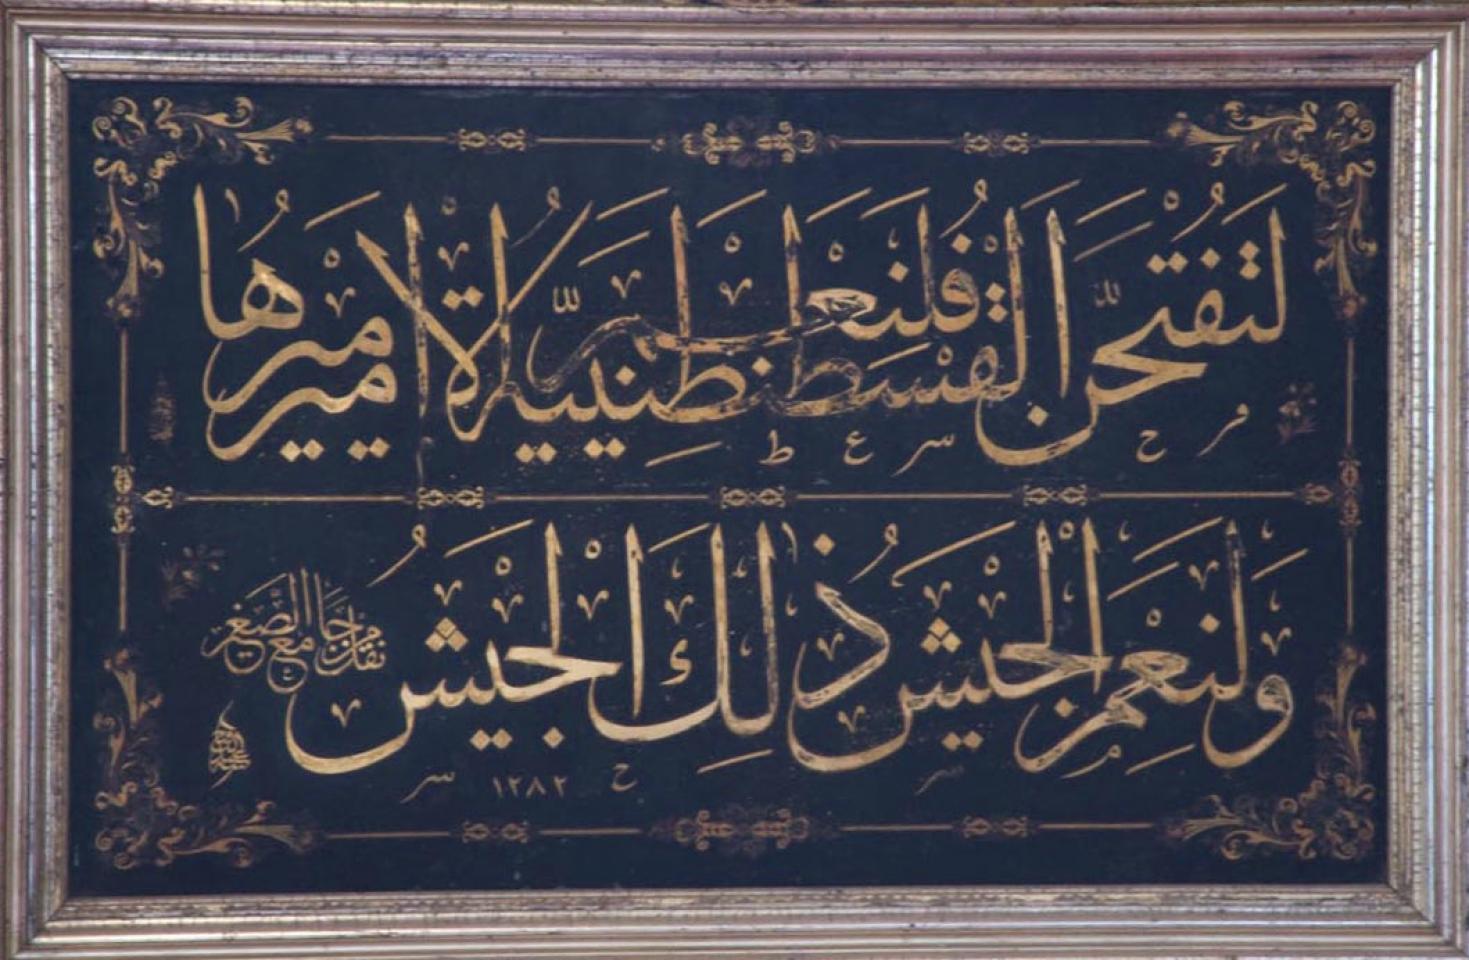 لتفتحن القسطنطينية فلنعم الامير اميرها
ولنعم الجيش ذلك الجيش
نقل من جامع الصغير
١٢٨٢